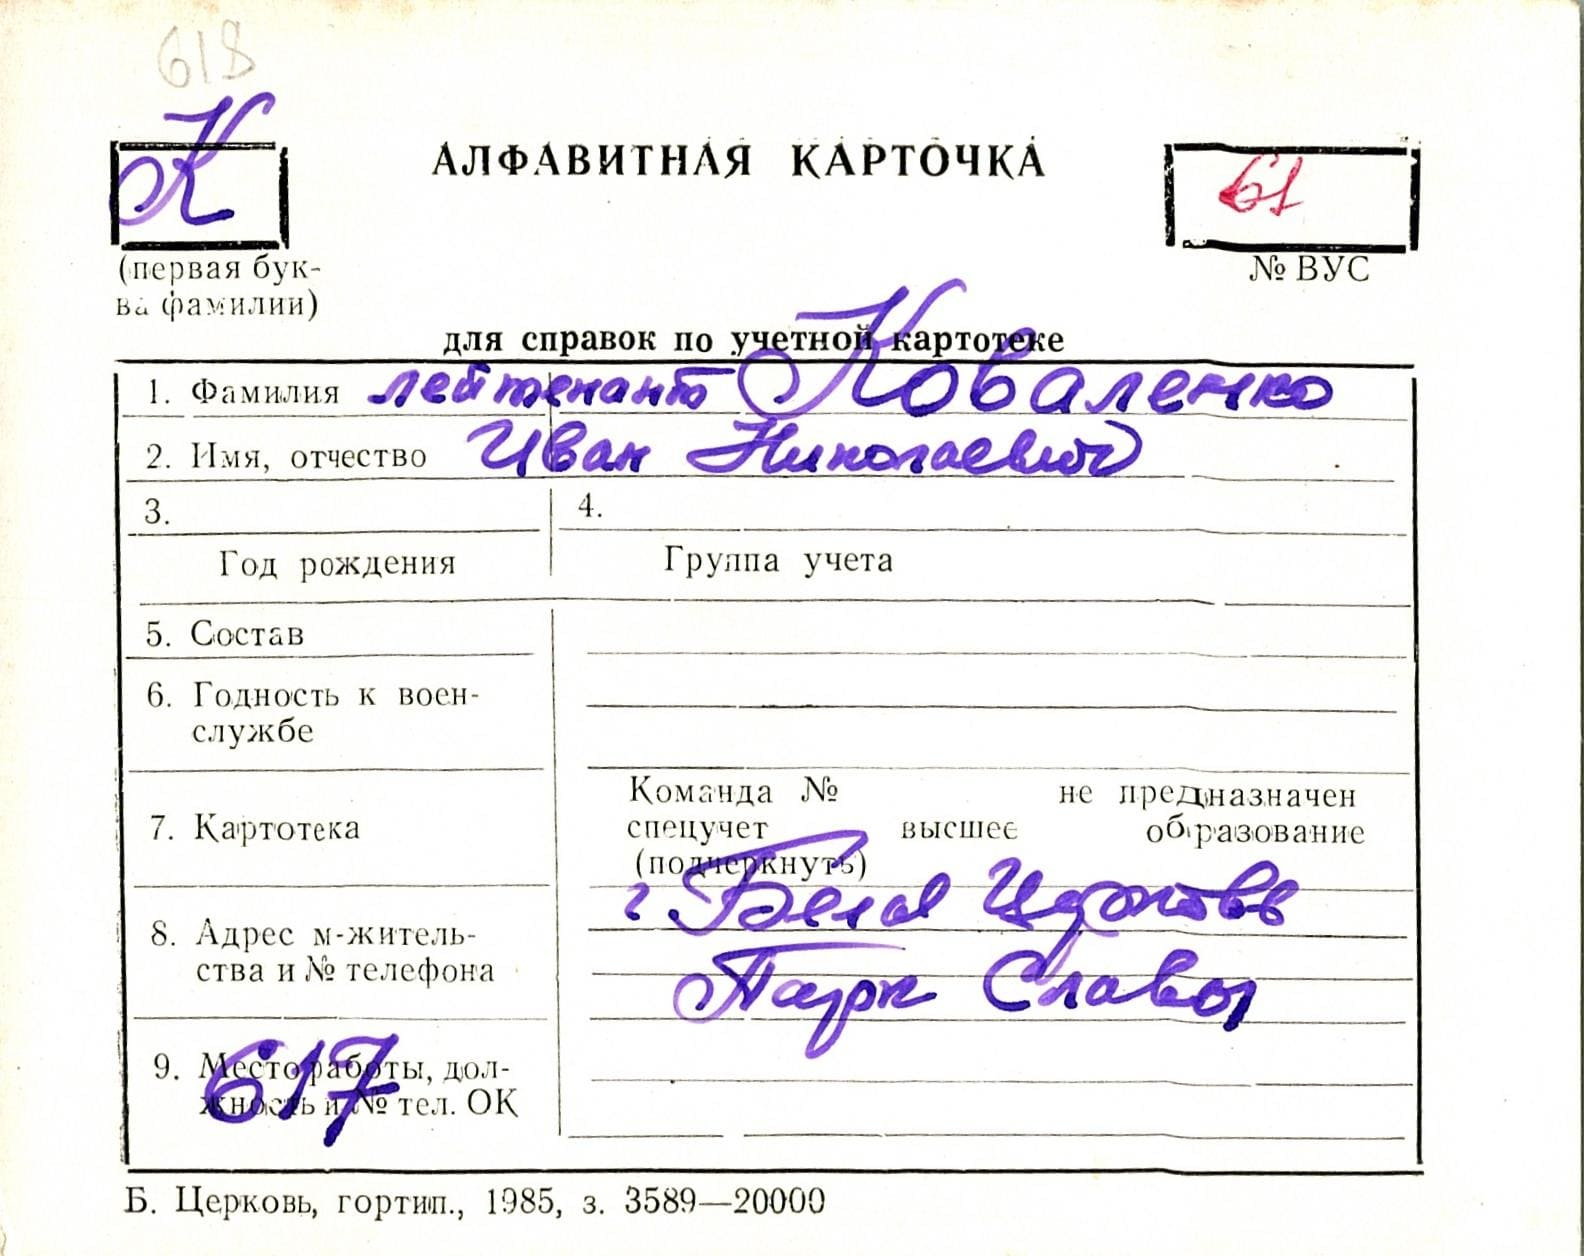 618
К
АЛФАВИТНАЯ КАРТОЧКА
61
(первая бук-
ва фамилии)
№ ВУС
для справок по учетной картотеке
1. Фамилия лейтенант Коваленко
2. Имя, отчество Иван Николаевич
3.
4.
Год рождения
Группа учета
5. Состав
6. Годность к воен-
службе
7. Картотека
Команда № не предназначен
спецучет высшее образование
(подчеркнуть)
8. Адрес м-житель-
ства и № телефона
г Белая Церковь
Парк Славы
9. Место работы, дол-
жность и № тел. ОК
617
Б. Церковь, гортип., 1985, з. 3589—20000